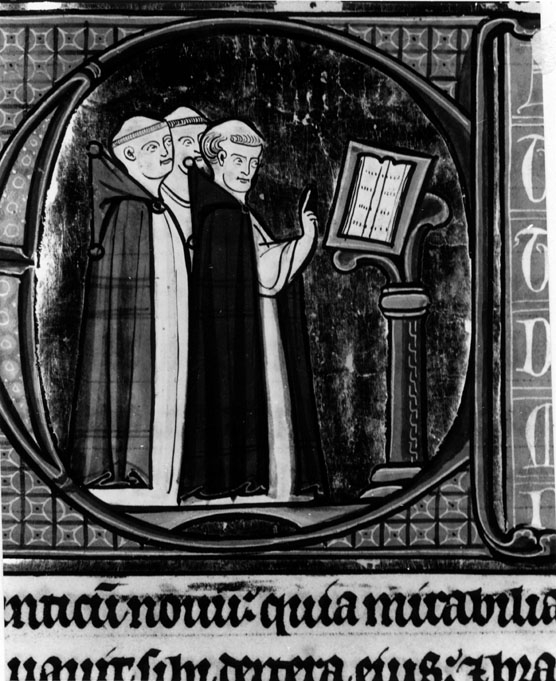 T
T
D
M
I
nticū nouū: quia mirabilia
uauit sibi dextera eius: ⁊ bra